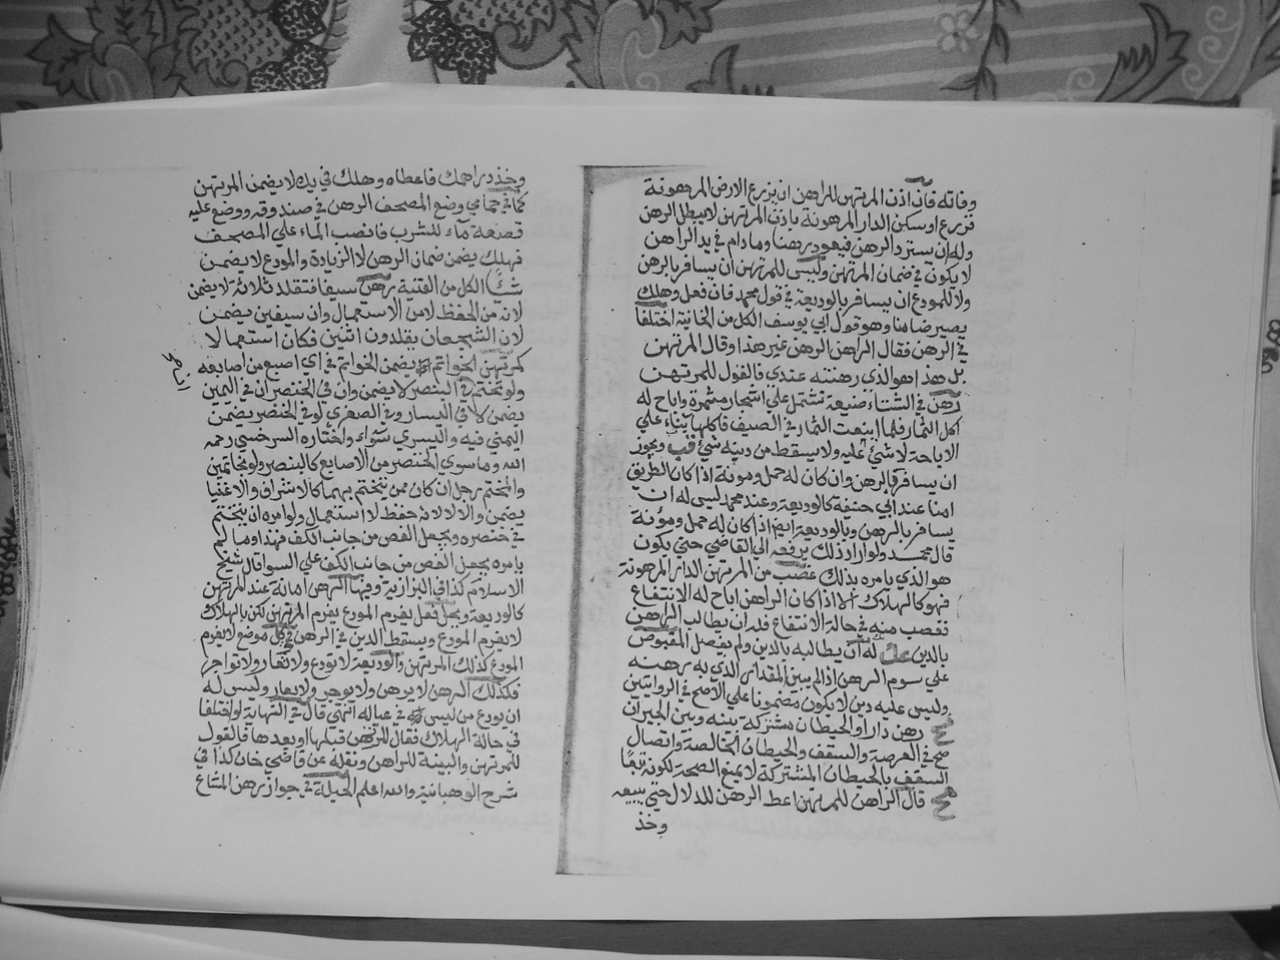 وفاته فان اذن المرتهن للراهن ان يزرع الارض المرهونة
فزرع او سكن الدار المرهونة باذن المرتهن لا يبطل الرهن
وله ان يسترد الرهن فيعود رهنا وما دام في يد الراهن
لا يكون في ضمان المرتهن وليس للمرتهن ان يسافر بالرهن
ولا للمودع ان يسافر بالوديعة في قول محمد فان فعل وهلك
يصير ضامنا وهو قول ابي يوسف الكل من الخانية اختلفا
في الرهن فقال الراهن الرهن غير هذا وقال المرتهن
بل هذا هو الذي رهنته عندي فالقول للمرتهن
رهن في الشتاء ضيعة تشتمل علي اشجار مثمرة واباح له
اكل الثمار فلما اينعت الثمار في الصيف فاكلها بناء علي
الاباحة لا شيء عليه ولا يسقط من دينه شيء قب ويجوز
ان يسافر بالرهن وان كان له حمل ومونة اذا كان الطريق
امنا عند ابي حنيفة كالوديعة وعند محمد ليس له ان
يسافر بالرهن وبالوديعة ايضا اذا كان له حمل ومؤنة
قال محمد ولو اراد ذلك يرفعه الي القاضي حتي يكون
هو الذي يامره بذلك غصب من المرتهن الدار المرهونة
فهو كالهلاك الا اذا كان الراهن اباح له الانتفاع
فغصب منه في حالة الانتفاع فله ان يطالب الراهن
بالدين له ان يطالبه بالدين ولم يفصل المقبوض
علي سوم الرهن اذا لم يبين المقدار الذي به رهنه
وليس عليه دين لا يكون مضمونا علي الاصح في الروايتين
رهن دارا والحيطان مشتركة بينه وبين الجيران
صح في العرصة والسقف والحيطان الخالصة واتصال
السقف بالحيطان المشتركة لا يمنع الصحة لكونه تبعا
قال الراهن للمرتهن اعط الرهن للدلال حتي يبيعه
وخذ
وخذ دراهمك فاعطاه وهلك في يده لا يضمن المرتهن
كما في حمامي وضع المصحف الرهن في صندوقه ووضع عليه
قصعة ماء للشرب فانصب الماء علي المصحف
فهلك يضمن ضمان الرهن لا الزيادة والمودع لا يضمن
شيأ الكل من القنية رهن سيفا فتقلد ثلاثة لا يضمن
لانه من الحفظ لا من الاستعمال وان سيفين يضمن
لان الشجعان يقلدون اثنين فكان استعمالا
كمرتهن الخواتم يضمن الخواتم في اي اصبع من اصابعه
ولو تختم في البنصر لا يضمن وان في الخنصر ان في اليمين
يضمن لا في اليسار وفي الصغري لو في الخنصر يضمن
اليمني فيه واليسري سواء واختاره السرخسي رحمه
الله وما سوي الخنصر من الاصابع كالبنصر ولو بخاتمين
والمختم رجل ان كان ممن يتختم بهما كالاشراف والاغنيا
يضمن والا لا لانه حفظ لا استعمال ولو امره ان يتختم
في خنصره ويجعل الفص من جانب الكف فهذا وما لم
يامره بجعل الفص من جانب الكف علي السوا قال شيخ
الاسلام كذا في البزازية وفيها الرهن امانة عند المرتهن
كالوديعة وبكل فعل يغرم المودع يغرم المرتهن لكن بالهلاك
لا يغرم المودع ويسقط الدين في الرهن في كل موضع لا يغرم
المودع كذلك المرتهن والوديعة لا تودع ولا تعار ولا تواجر
فكذلك الرهن لا يرهن ولا يوجر ولا يعار وليس له
ان يودع من ليس في عياله انتهي قال في النهاية لو اختلفا
في حالة الهلاك فقال المرتهن قبلها او بعدها فالقول
للمرتهن والبينة للراهن ونقله عن قاضي خان كذا في
شرح الوهبانية والله اعلم الحيلة في جواز رهن المشاع